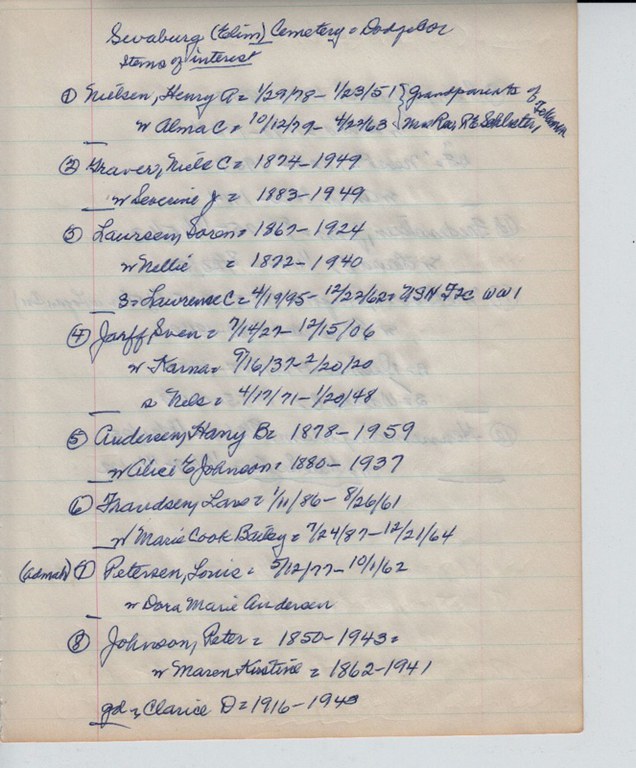 Swaburg (Elim) Cemetery = Dodge Cor
Items of interest
① Nielsen, Henry A = 1/29/78 - 1/23/51 } Grandparents of
w Alma C = 10/12/79 - 4/27/63 } Mrs Ray R E Schlueter, Tekamah
② Graver, Niels C = 1874-1949
w Severine J = 1883-1949
③ Laursen, Soren = 1867-1924
w Nellie = 1872-1940
s = Lawrence C = 4/19/95 - 12/22/62 = USN F2C WW1
④ Jarff, Sven = 7/14/27 - 12/15/06
w Karna = 9/16/37 - 2/20/20
s Nels = 4/17/71 - 1/20/48
⑤ Andersen, Harry B = 1878-1959
w Alice E Johnson = 1880-1937
⑥ Frandsen, Lars = 1/11/86 - 8/26/61
w Marie Cook Bailey = 7/24/87 - 12/21/64
(Admah) ⑦ Petersen, Louis = 5/12/77 - 10/1/62
w Dora Marie Andersen
⑧ Johnson, Peter = 1850-1943 =
w Maren Kirstine = 1862-1941
gd = Clarice D = 1916-1943